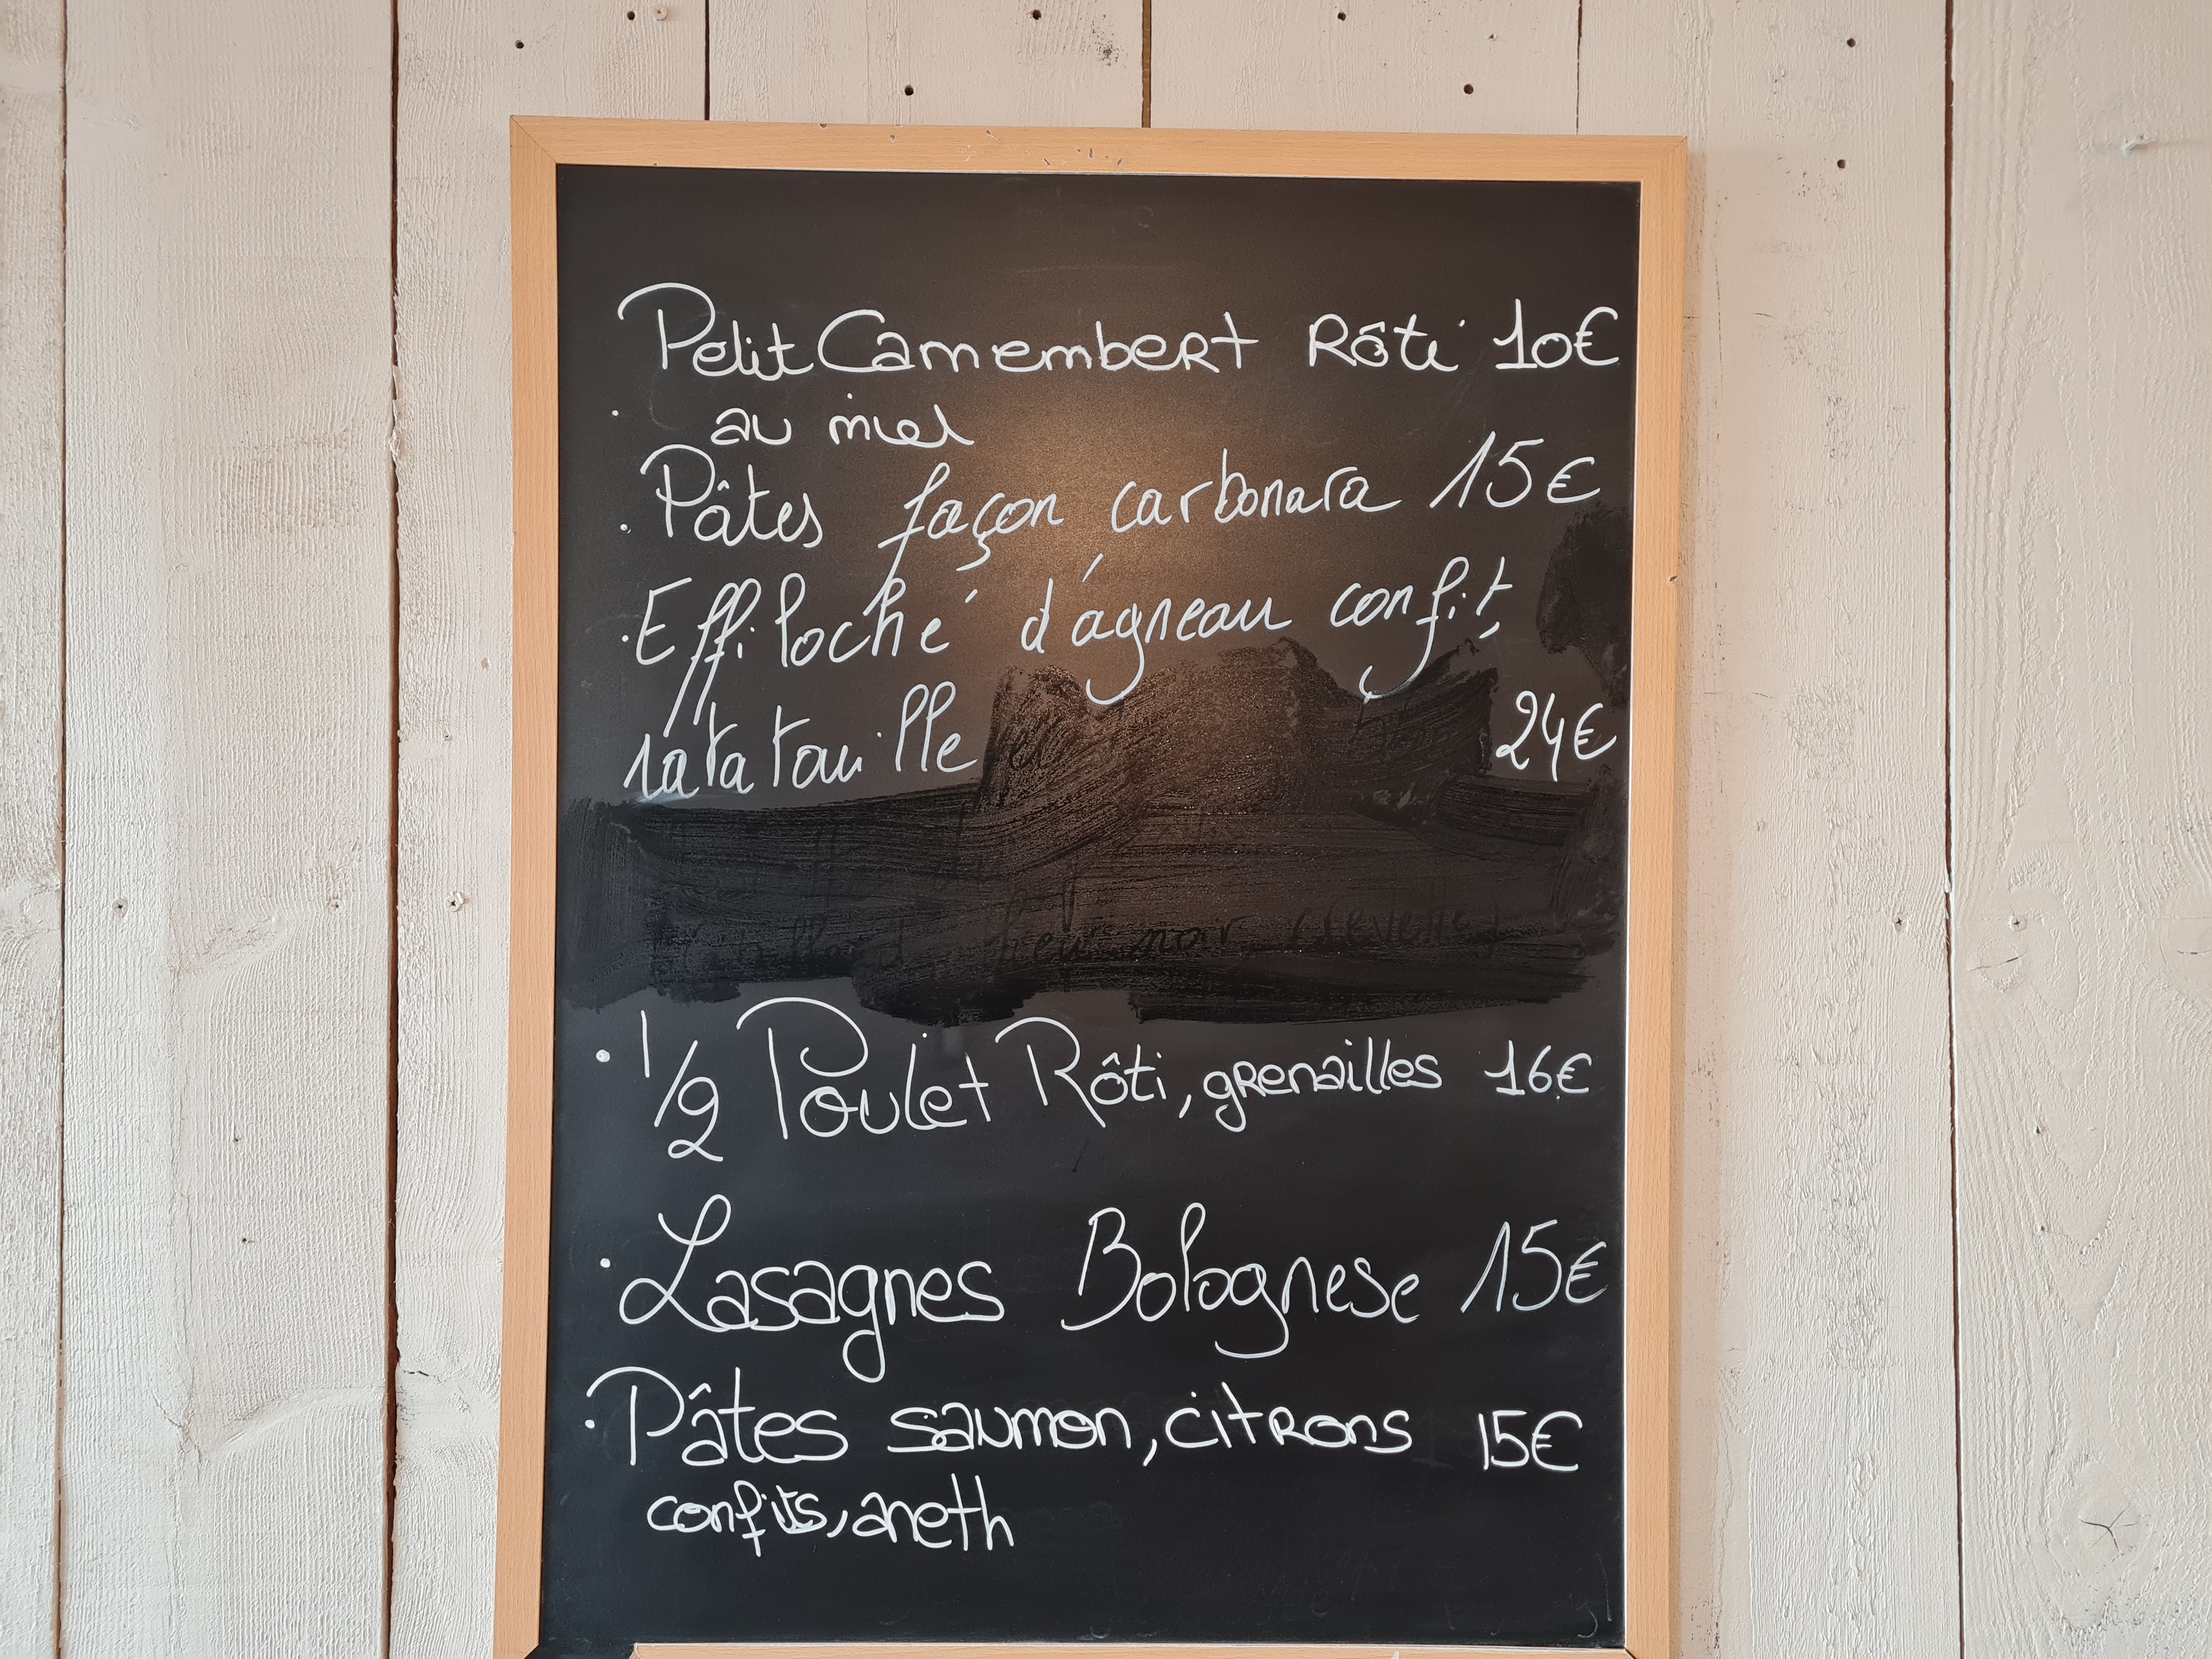 Petit Camembert Rôti 10€
· au miel
· Pâtes façon carbonara 15€
· Effiloché d'agneau confit,
ratatouille 24€
· 1/2 Poulet Rôti, grenailles 16€
· Lasagnes Bolognese 15€
· Pâtes saumon, citrons 15€
confits, aneth